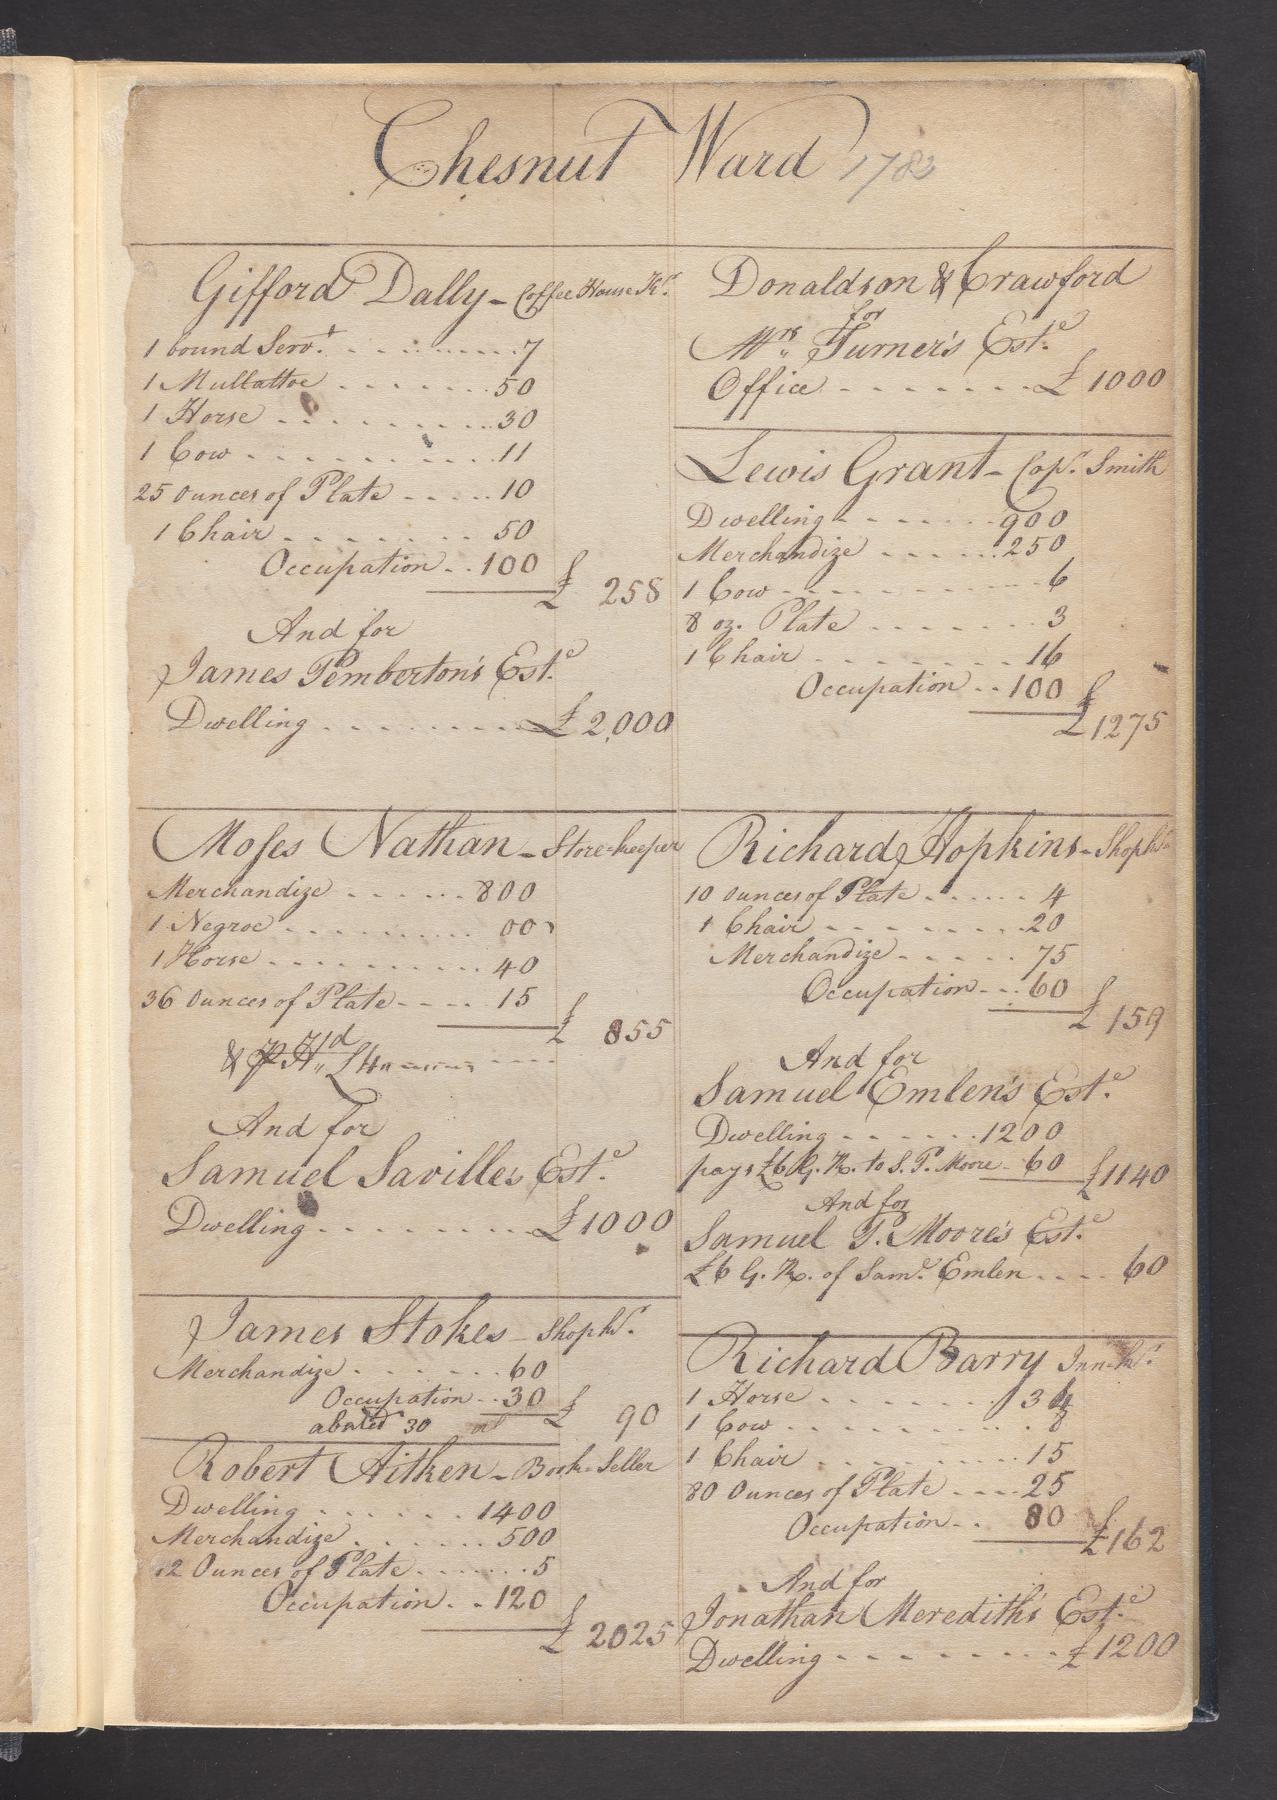 Chesnut Ward 1782
Gifford Dally - Coffee House Kr.
1 bound Servt. 7
1 Mullattoe 50
1 Horse 30
1 Cow 11
25 Ounces of Plate 10
1 Chair 50
Occupation 100
£ 258
And for
James Pemberton's Este.
Dwelling £ 2,000
Moses Nathan - Store-keeper
Merchandize 800
1 Negroe 00
1 Horse 40
36 Ounces of Plate 15
£ 855
& P. Hd
And for
Samuel Savilles Este.
Dwelling £1000
James Stokes - Shopkr.
Merchandize 60
Occupation 30
£ 90
abated 30
Robert Aitken - Book-Seller
Dwelling 1400
Merchandize 500
12 Ounces of Plate 5
Occupation 120
£ 2025
Donaldson & Crawford
for
Mrs. Turner's Este.
Office £ 1000
Lewis Grant - Copr. Smith
Dwelling 900
Merchandize 250
1 Cow 6
8 oz. Plate 3
1 Chair 16
Occupation 100
£1275
Richard Hopkins - Shopkr.
10 Ounces of Plate 4
1 Chair 20
Merchandize 75
Occupation 60
£ 159
And for
Samuel Emlen's Este.
Dwelling 1200
pays £6 G. R. to S. P. Moore 60 £1140
And for
Samuel P. Moore's Este.
£6 G. R. of Saml. Emlen 60
Richard Barry Inn-kr.
1 Horse 34
1 Cow 8
1 Chair 15
80 Ounces of Plate 25
Occupation 80
£162
And for
Jonathan Meredith's Este.
Dwelling £1200